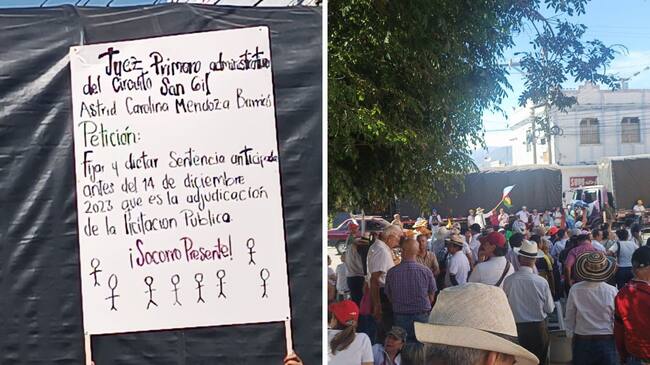 Juez Primero administrativo
del Circuito San Gil
Astrid Carolina Mendoza Barrios
Petición:
Fijar y dictar sentencia anticipada
antes del 14 de diciembre
2023 que es la adjudicación
de la licitación Pública
¡Socorro Presente!